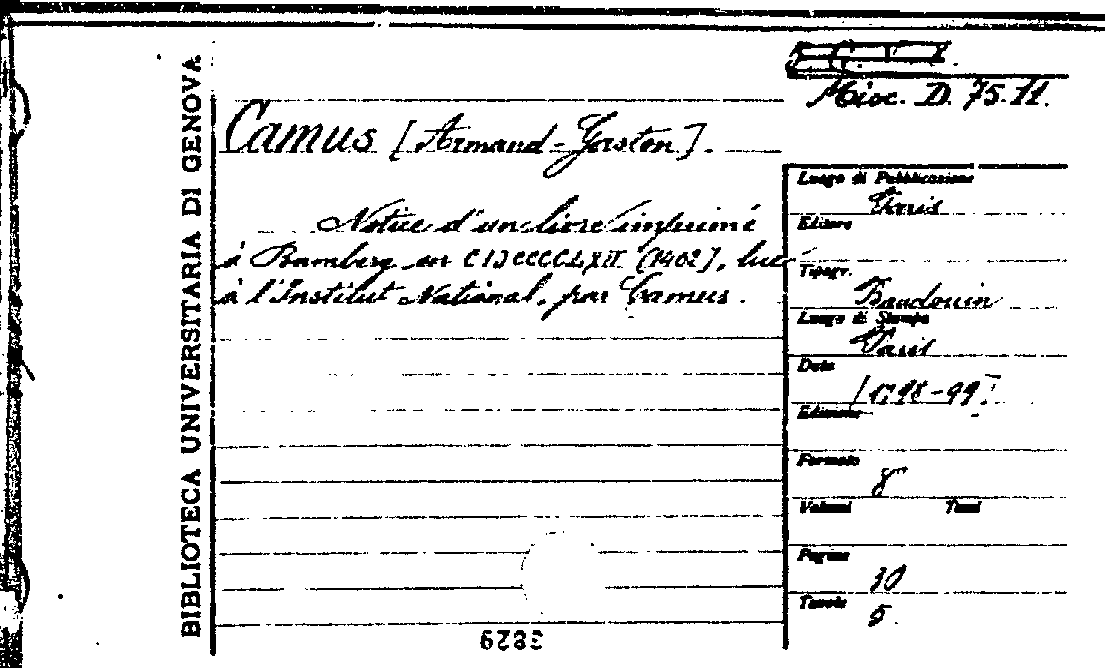 BIBLIOTECA UNIVERSITARIA DI GENOVA
Misc. D. 75.11.
Camus [Armand-Gaston].
Notice d'un livre imprimé
à Bamberg en CIƆCCCCLXII (1462), lue
à l'Institut National, par Camus.
Luogo di Pubblicazione
Paris
Editore
Tipogr.
Baudouin
Luogo di Stampa
Paris
Data
[1798-99]
Edizione
Formato
8°
Volumi Tomi
Pagine
30
Tavole
5
3829